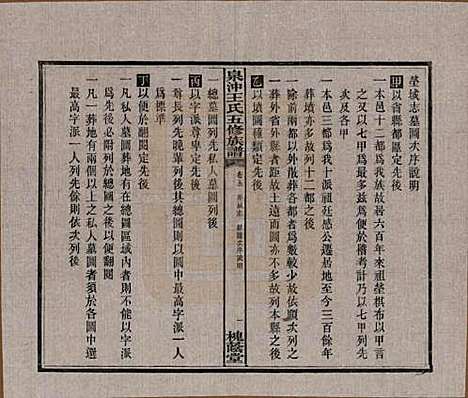 塋域志墓圖次序說明
甲以省縣都區定先後
一本邑十二都爲我族故居六百年來祖塋棋布以
之又以七甲爲最多兹爲便於稽考計以七甲列先
次及各甲
一本邑三都爲我十派祖廷感公遷居地至今三百餘年
塋墓亦多故列十二都之後
一除前兩都以外散葬各都者爲數較少故依順次列之
一葬外省外縣者距故土遠而圖亦不多故列本縣之後
乙以墳圖種類定先後
泉沖王氏五修族譜
卷五
塋域志
墓圖次序說明
一
槐蔭堂
一總墓圖列先私人墓圖列後
丙以字派尊卑定先後
一尊長列先晚輩列後其總圖則以圖中最高字派一人
爲標準
丁以便於翻閱定先後
一凡私人墓圖葬地有在總圖區域內者則不依字派先
後必附列於總圖之後以便翻閱
一凡一葬地有兩個以上之私人墓圖者須於各圖中選
最高字派一人列先餘則依次列後